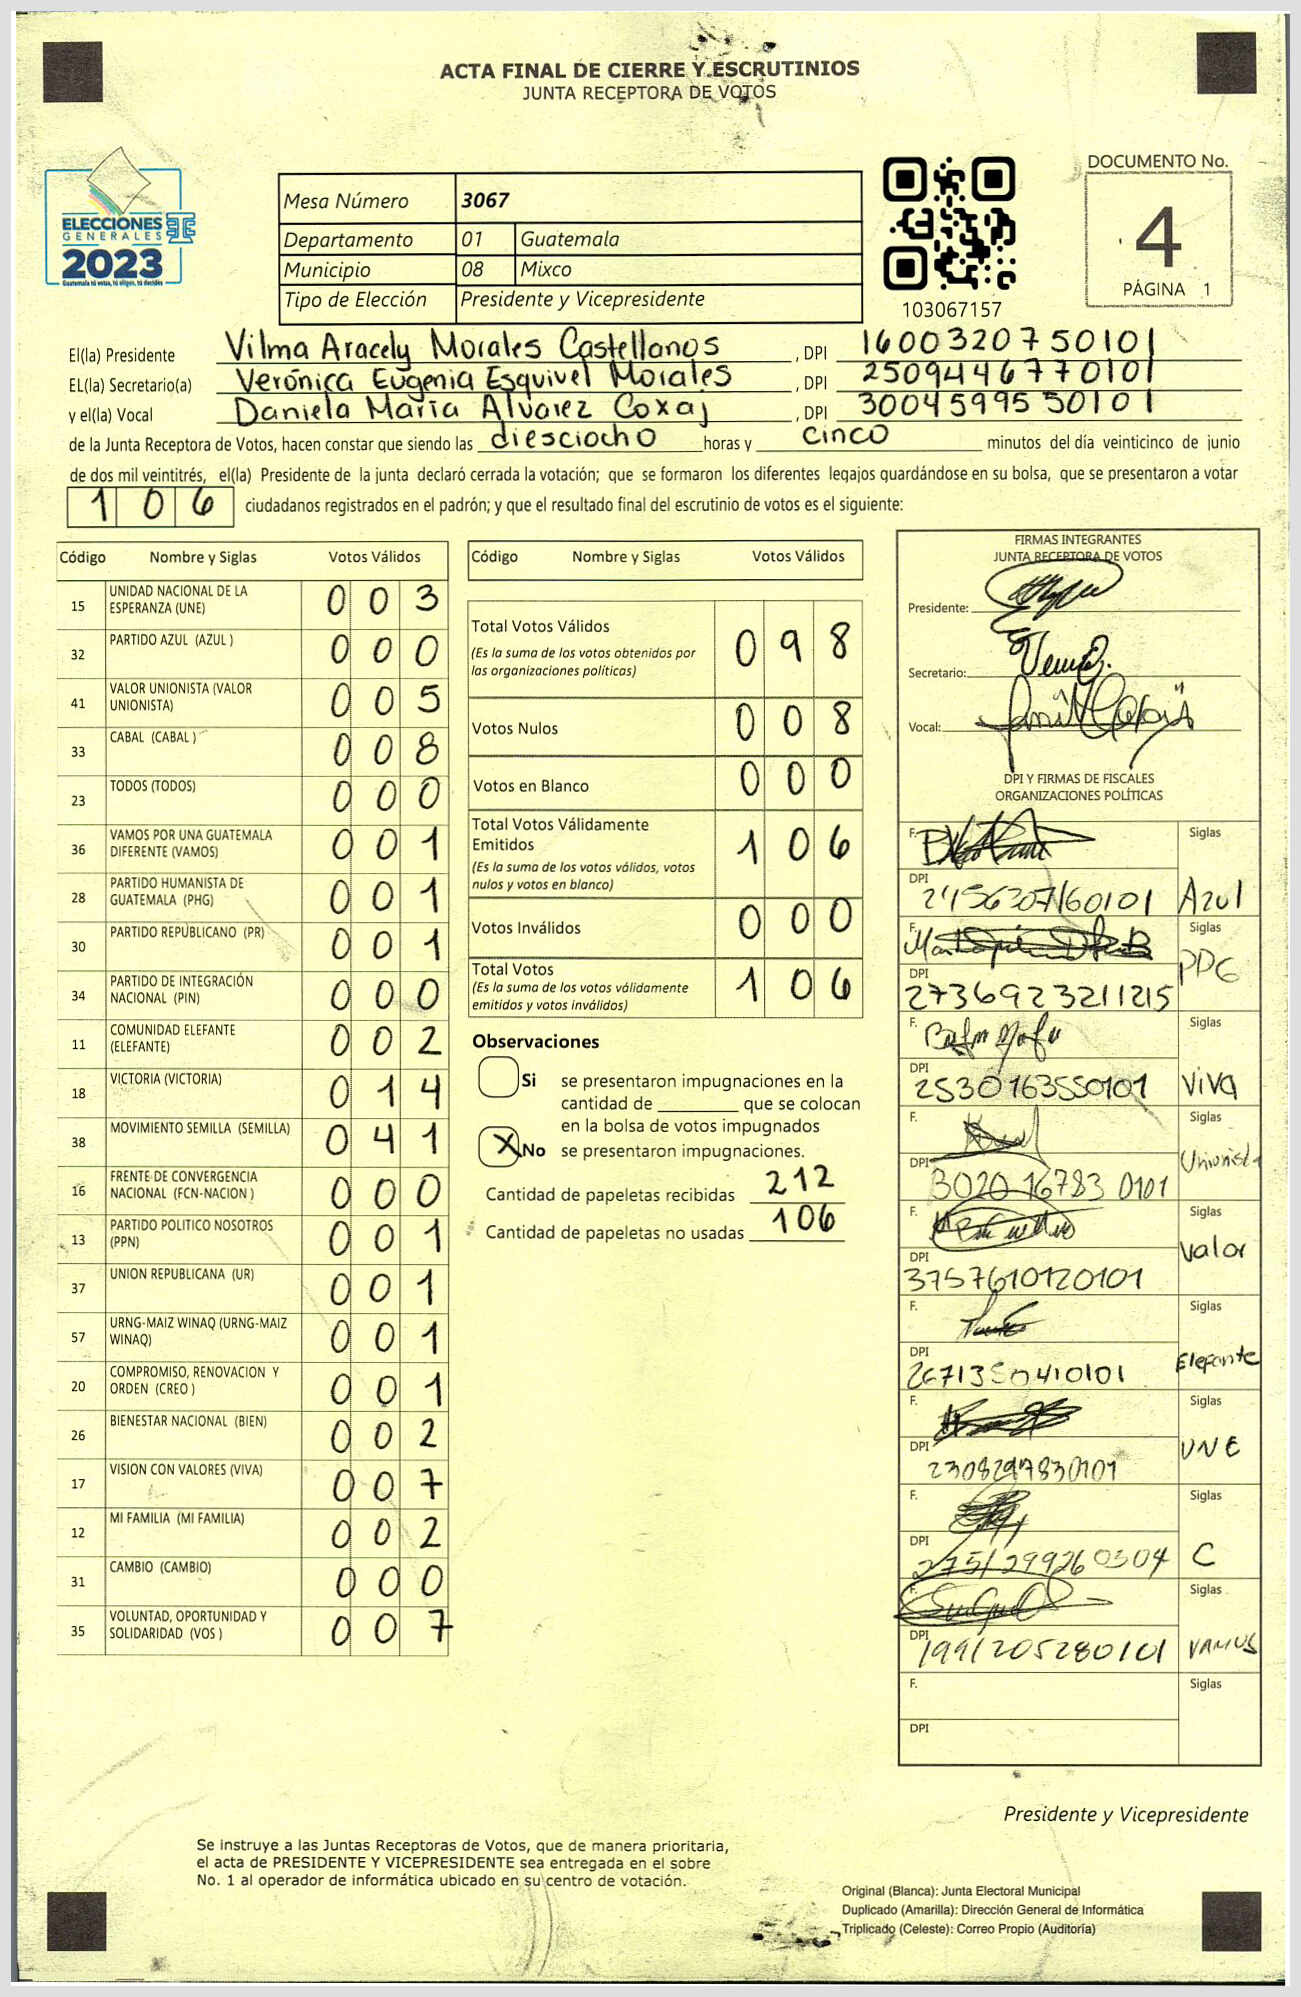 ACTA FINAL DE CIERRE Y ESCRUTINIOS
JUNTA RECEPTORA DE VOTOS
ELECCIONES
GENERALES
2023
Guatemala tú votas, tú eliges, tú decides
Mesa Número 3067
Departamento 01 Guatemala
Municipio 08 Mixco
Tipo de Elección Presidente y Vicepresidente
103067157
DOCUMENTO No.
4
PÁGINA 1
El(la) Presidente Vilma Aracely Morales Castellanos, DPI 1600320750101
EL(la) Secretario(a) Verónica Eugenia Esquivel Morales, DPI 2509446770101
y el(la) Vocal Daniela María Alvarez Coxaj, DPI 3004599550101
de la Junta Receptora de Votos, hacen constar que siendo las diesciocho horas y cinco minutos del día veinticinco de junio
de dos mil veintitrés, el(la) Presidente de la junta declaró cerrada la votación; que se formaron los diferentes legajos guardándose en su bolsa, que se presentaron a votar
106 ciudadanos registrados en el padrón; y que el resultado final del escrutinio de votos es el siguiente:
Código Nombre y Siglas Votos Válidos
15 UNIDAD NACIONAL DE LA ESPERANZA (UNE) 003
32 PARTIDO AZUL (AZUL ) 000
41 VALOR UNIONISTA (VALOR UNIONISTA) 005
33 CABAL (CABAL ) 008
23 TODOS (TODOS) 000
36 VAMOS POR UNA GUATEMALA DIFERENTE (VAMOS) 001
28 PARTIDO HUMANISTA DE GUATEMALA (PHG) 001
30 PARTIDO REPUBLICANO (PR) 001
34 PARTIDO DE INTEGRACIÓN NACIONAL (PIN) 000
11 COMUNIDAD ELEFANTE (ELEFANTE) 002
18 VICTORIA (VICTORIA) 014
38 MOVIMIENTO SEMILLA (SEMILLA) 041
16 FRENTE DE CONVERGENCIA NACIONAL (FCN-NACION ) 000
13 PARTIDO POLITICO NOSOTROS (PPN) 001
37 UNION REPUBLICANA (UR) 001
57 URNG-MAIZ WINAQ (URNG-MAIZ WINAQ) 001
20 COMPROMISO, RENOVACION Y ORDEN (CREO ) 001
26 BIENESTAR NACIONAL (BIEN) 002
17 VISION CON VALORES (VIVA) 007
12 MI FAMILIA (MI FAMILIA) 002
31 CAMBIO (CAMBIO) 000
35 VOLUNTAD, OPORTUNIDAD Y SOLIDARIDAD (VOS ) 007
Código Nombre y Siglas Votos Válidos
Total Votos Válidos 098
(Es la suma de los votos obtenidos por
las organizaciones políticas)
Votos Nulos 008
Votos en Blanco 000
Total Votos Válidamente
Emitidos 106
(Es la suma de los votos válidos, votos
nulos y votos en blanco)
Votos Inválidos 000
Total Votos 106
(Es la suma de los votos válidamente
emitidos y votos inválidos)
Observaciones
Si se presentaron impugnaciones en la
cantidad de ________ que se colocan
en la bolsa de votos impugnados
X No se presentaron impugnaciones.
Cantidad de papeletas recibidas 212
Cantidad de papeletas no usadas 106
FIRMAS INTEGRANTES
JUNTA RECEPTORA DE VOTOS
Presidente:
Secretario:
Vocal:
DPI Y FIRMAS DE FISCALES
ORGANIZACIONES POLÍTICAS
F. Siglas
DPI Azul
F. Siglas
DPI 2736923211215 PPG
F. Siglas
DPI 2530163550101 VIVA
F. Siglas
DPI 3020 16783 0101 Unionista
F. Siglas
DPI 3757610120101 Valor
F. Siglas
DPI Elefante
F. Siglas
DPI UNE
F. Siglas
DPI C
F. Siglas
DPI 1991205280101 VAMOS
F. Siglas
DPI
Presidente y Vicepresidente
Se instruye a las Juntas Receptoras de Votos, que de manera prioritaria,
el acta de PRESIDENTE Y VICEPRESIDENTE sea entregada en el sobre
No. 1 al operador de informática ubicado en su centro de votación.
Original (Blanca): Junta Electoral Municipal
Duplicado (Amarilla): Dirección General de Informática
Triplicado (Celeste): Correo Propio (Auditoría)